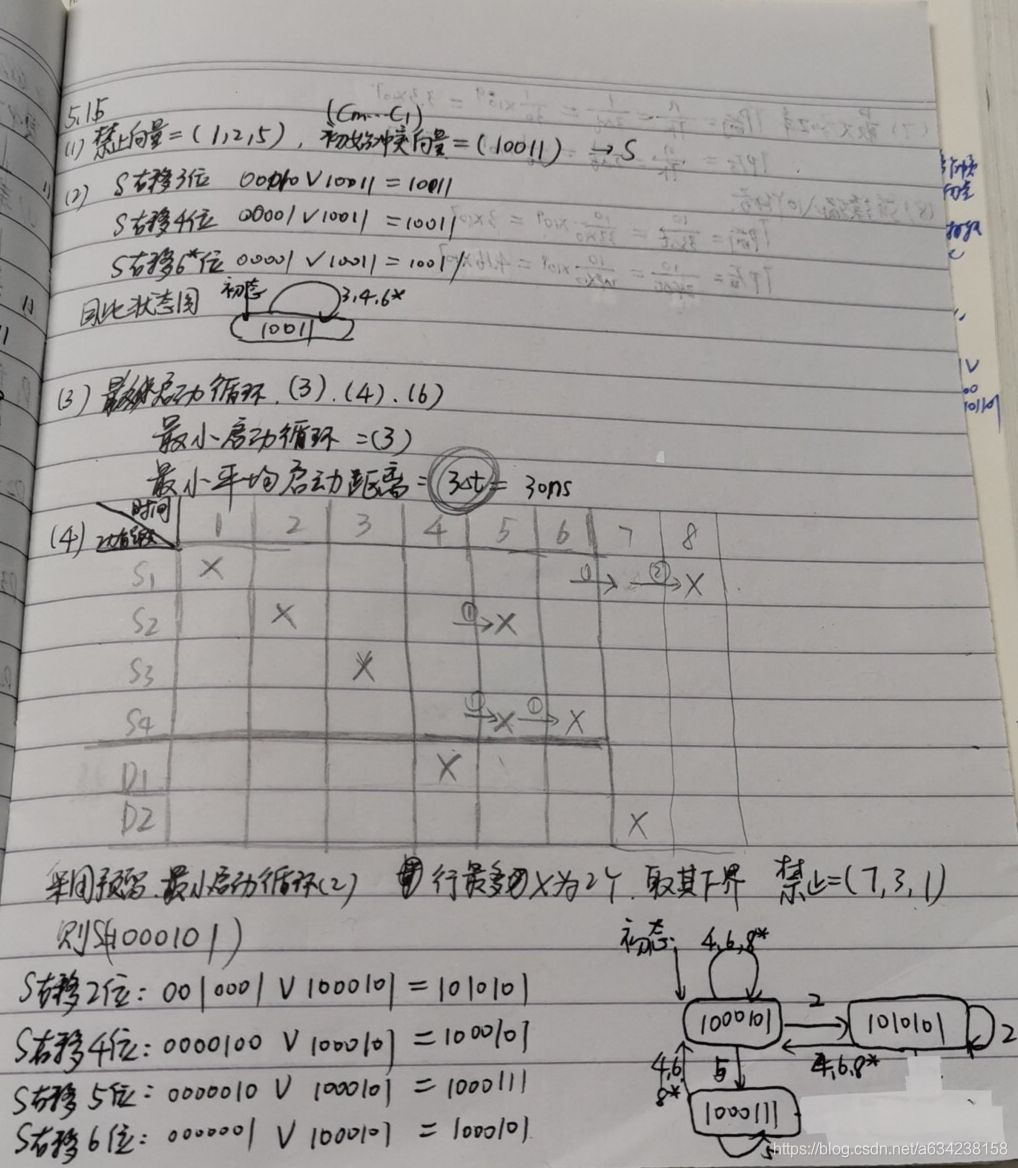 5.15
(Cm...C1)
(1) 禁止向量=(1,2,5), 初始冲突向量=(10011) →S
(2) S右移3位 00010 ∨ 10011 = 10011
S右移4位 00001 ∨ 10011 = 10011
S右移6*位 00001 ∨ 10011 = 10011
因此状态图 初态 3,4,6*
10011
(3) 启动循环.(3).(4).(6)
最小启动循环=(3)
最小平均启动距离=3Δt=30ns
(4) 时间 1 2 3 4 5 6 7 8
功能段
S1 X ① ② X
S2 X ① X
S3 X
S4 ① X ① X
D1 X
D2 X
采用预留.最小启动循环(2) 行最多X为2个.取其下界 禁止=(7,3,1)
则S(1000101)
S右移2位: 0010001 ∨ 1000101 = 1010101
S右移4位: 0000100 ∨ 1000101 = 1000101
S右移5位: 0000010 ∨ 1000101 = 1000111
S右移6位: 0000001 ∨ 1000101 = 1000101
初态 4,6,8*
1000101 2 1010101 2
4,6,8*
4,6,8* 5
1000111
5
https://blog.csdn.net/a634238158